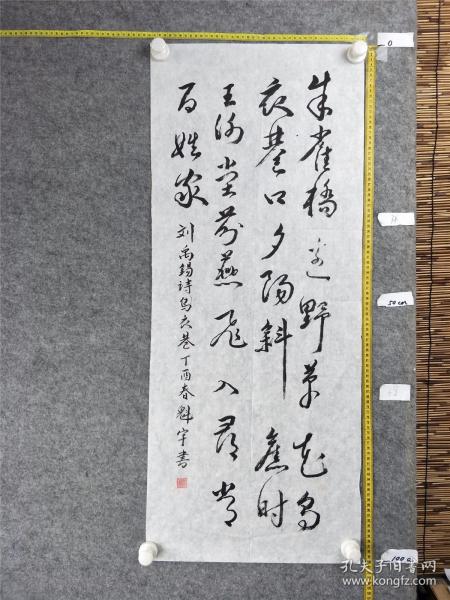 朱雀橋边野草花烏
衣巷口夕陽斜舊时
王谢堂前燕飛入尋常
百姓家
刘禹锡诗乌衣巷丁酉春魁宇書
0
50cm
100c
孔夫子旧书网
www.kongfz.com